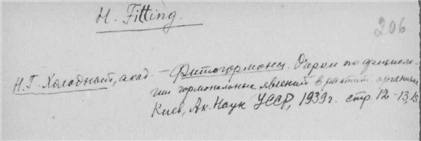 H. Fitting.
206
Н.Г. Холодный, акад. – Фитогормоны. Очерки по физиоло-
гии гормональных явлений в растит. организме
Киев, Ак. Наук УССР, 1939 г. стр. 12-13,